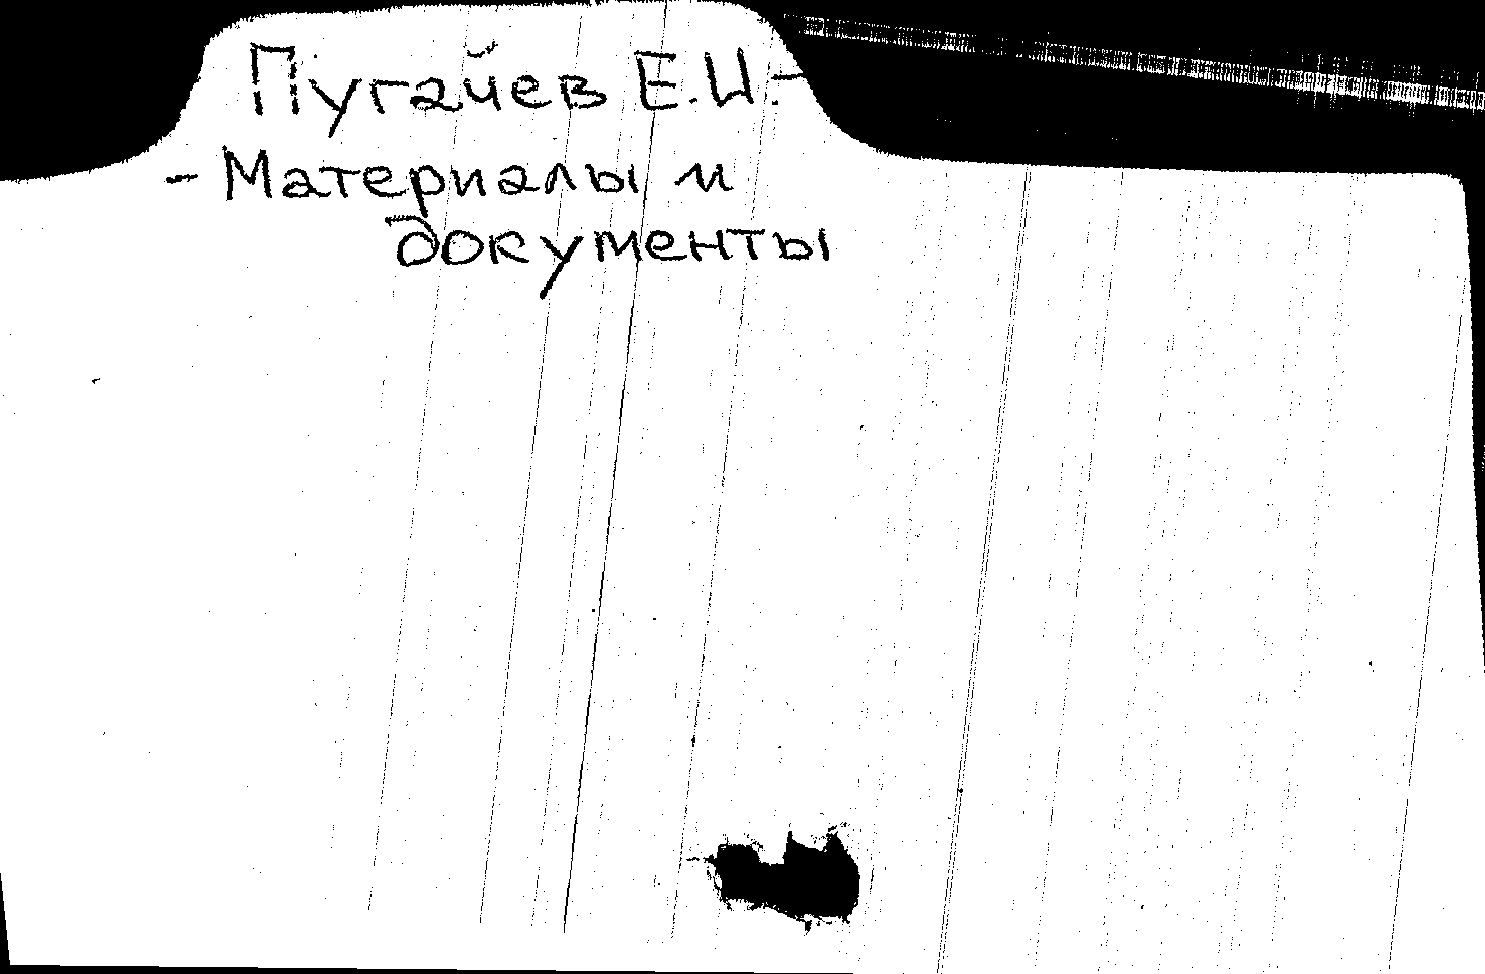 Пугайчев Е.И.-
- Материалы и
документы